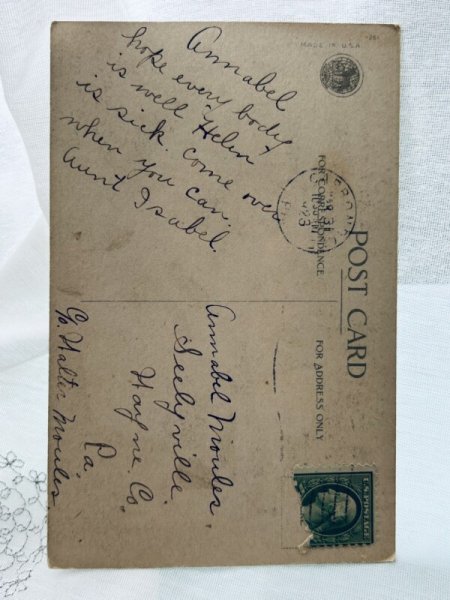 MADE IN U.S.A.
POST CARD
FOR CORRESPONDENCE
FOR ADDRESS ONLY
Annabel
hope every body
is well Helen
is sick. come over
when you can.
Aunt Isabel.
Annabel Moules.
Seelyville
Wayne Co.
Pa.
C/o Walter Moules
U.S. POSTAGE